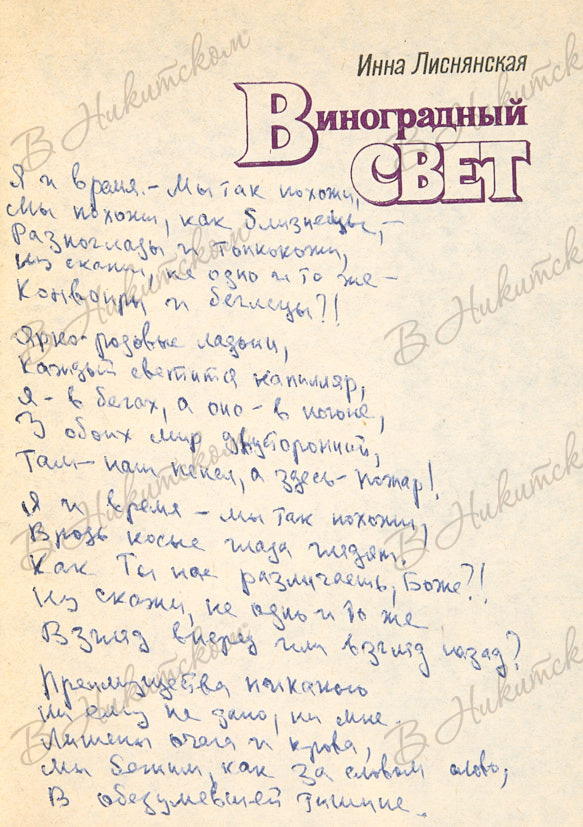 Инна Лиснянская
Виноградный
СВЕТ
Я и время – мы так похожи,
Мы похожи, как близнецы, –
Разноглазы и тонкокожи,
Ну скажи, не одно и то же –
Конвоиры и беглецы?!
Ярко-розовые ладони,
Каждый светится капилляр,
Я – в бегах, а оно – в погоне,
У обоих мир двусторонний,
Там – наш пепел, а здесь – пожар!
Я и время – мы так похожи,
Врозь косые глаза глядят.
Как Ты нас различаешь, Боже?!
Ну скажи, не одно и то же
Взгляд вперед или взгляд назад?
Преимущества никакого
Ни ему не дано, ни мне.
Лишены очага и крова,
Мы бежим, как за словом слово,
В обезумевшей тишине.
В Никитском
В Никитском
В Никитском
В Никитском
В Никитском
В Никитском
В Никитском
В Никитском